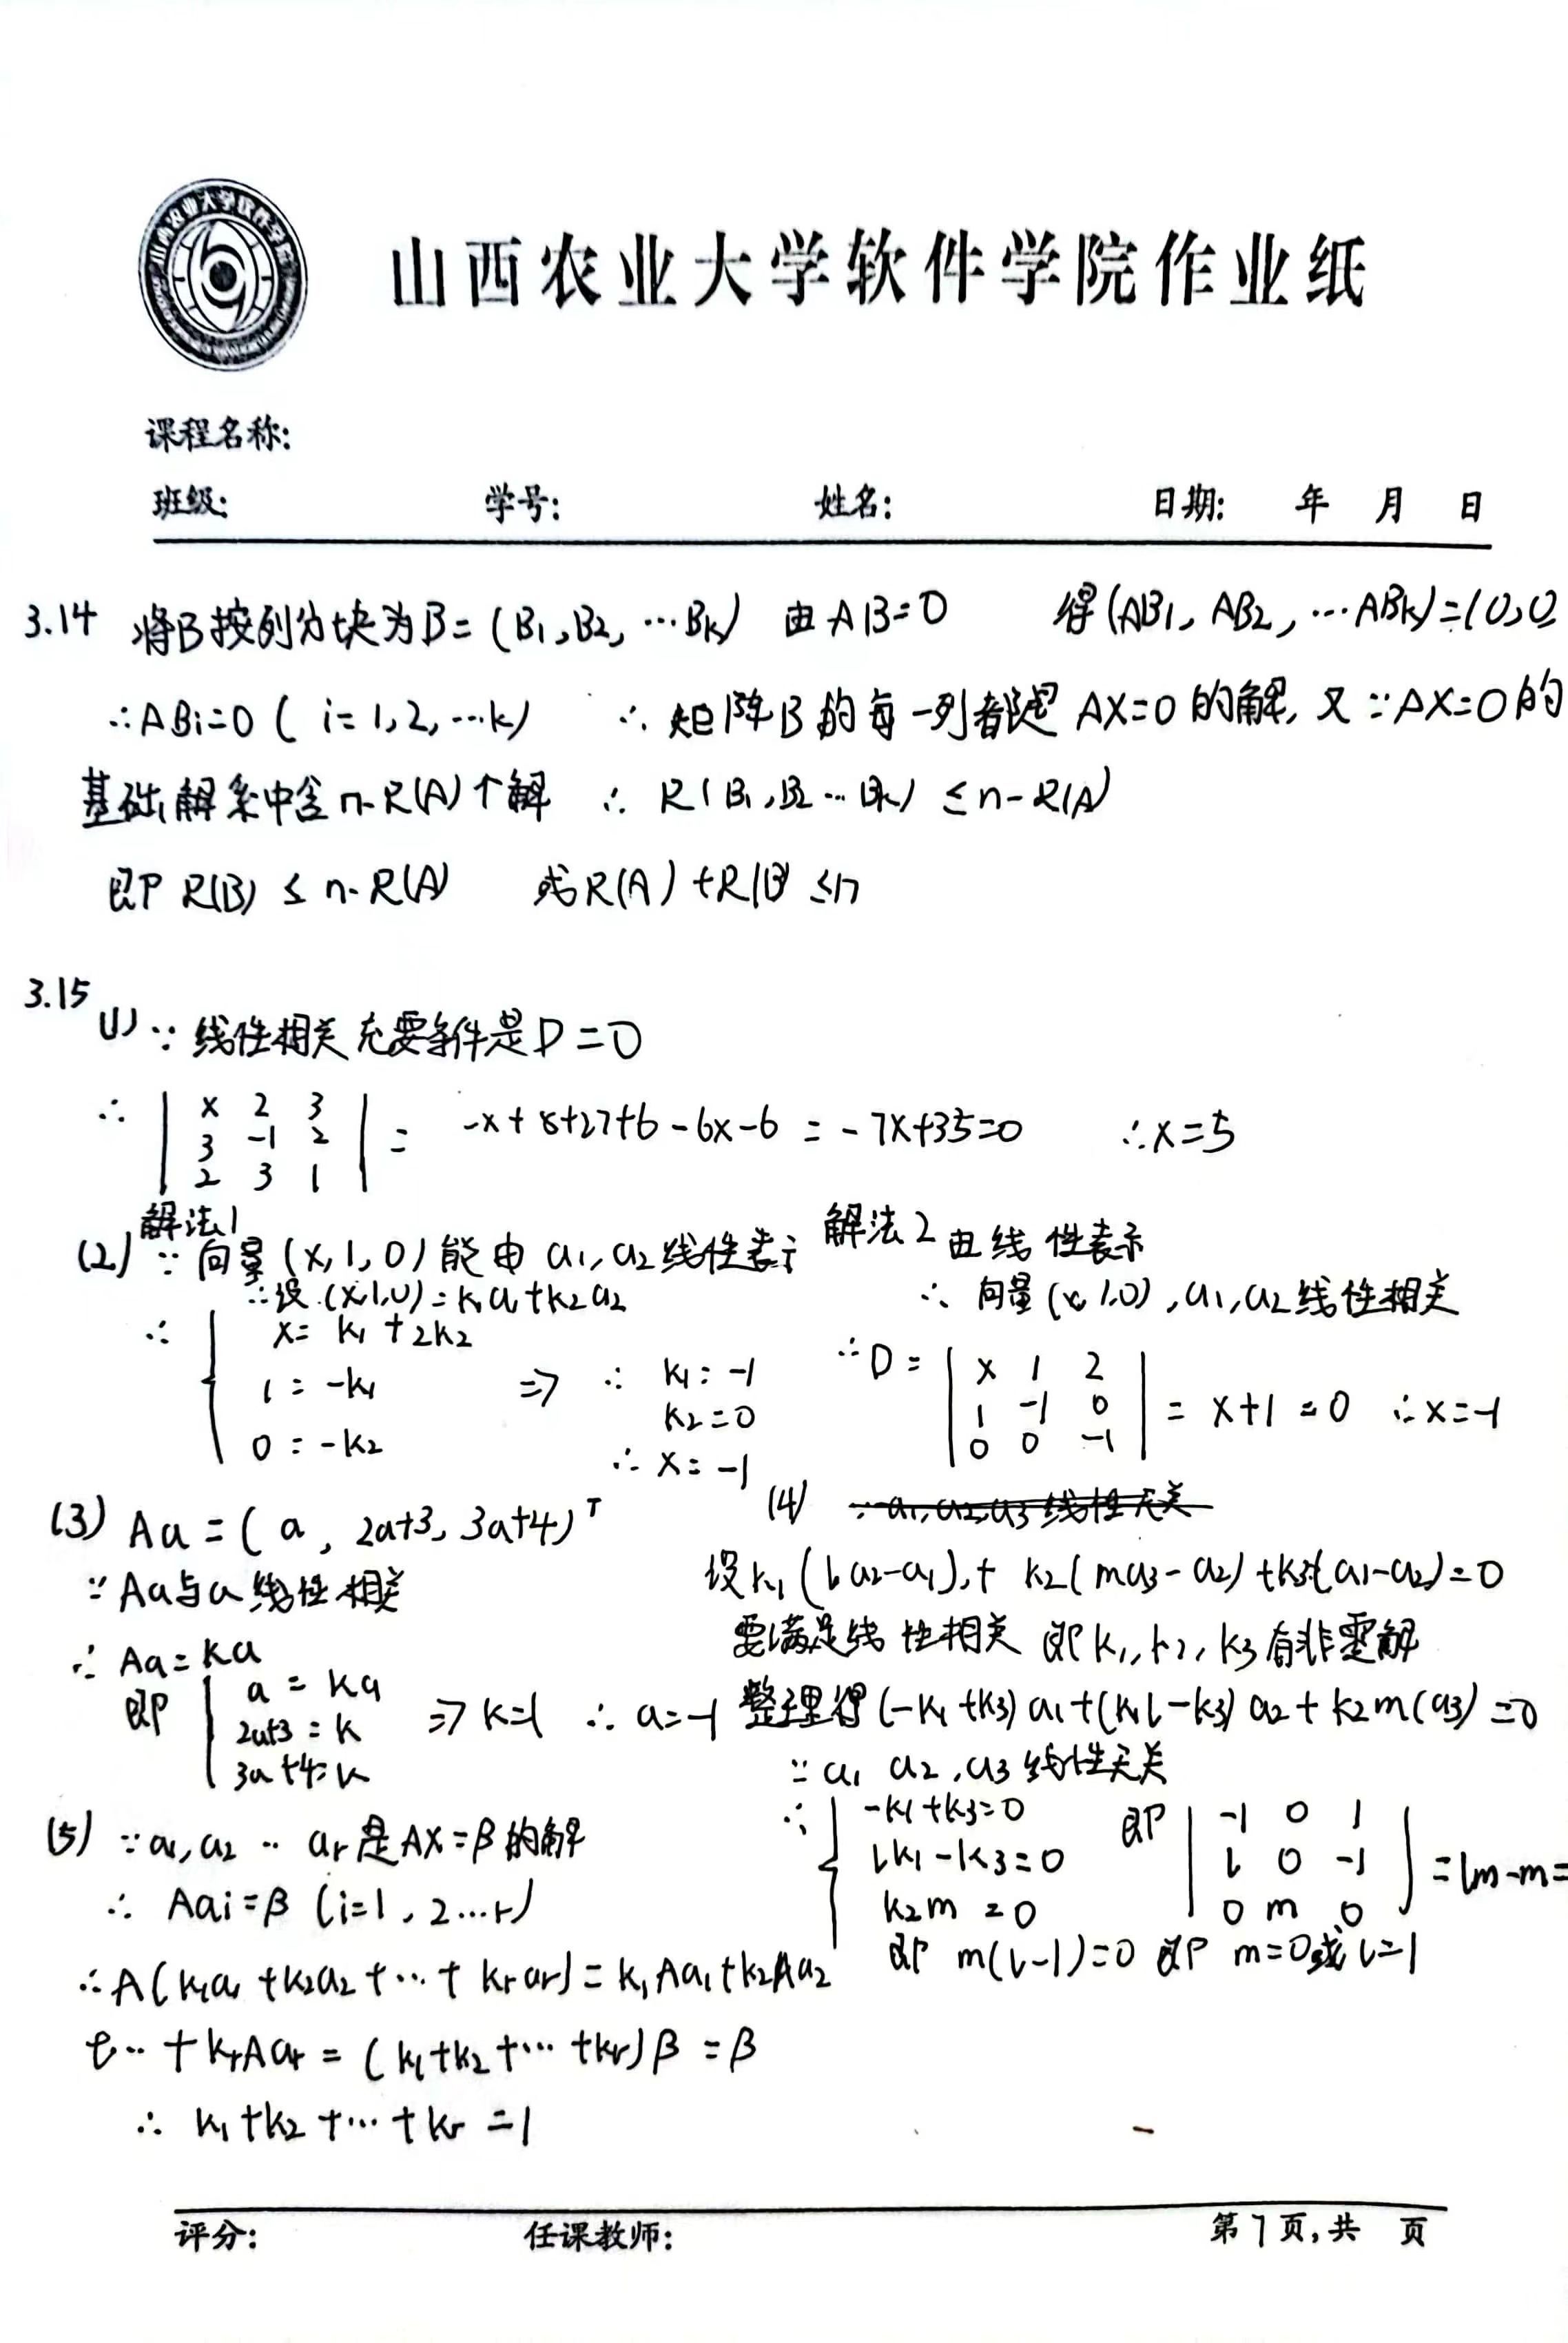 山西农业大学软件学院作业纸
课程名称:
班级: 学号: 姓名: 日期: 年 月 日
3.14 将B按列分块为B=(B1,B2,…Bk) 由AB=0 得(AB1, AB2, …ABk)=(0,0
∴ABi=0 ( i=1,2,…k) ∴ 矩阵B的每一列都是 AX=0的解, 又∵AX=0的
基础解系中含n-R(A)个解 ∴ R(B1,B2…Bk) ≤n-R(A)
即 R(B) ≤ n-R(A) 或R(A)+R(B) ≤n
3.15
(1) ∵ 线性相关充要条件是D=0
∴ | x 2 3 |
| 3 -1 2 | = -x+8+27+6-6x-6 = -7x+35=0 ∴x=5
| 2 3 1 |
解法1
(2) ∵ 向量(x,1,0)能由 a1,a2线性表示
∴设(x,1,0)=k1a1+k2a2
∴ { x= k1+2k2
1 = -k1
0 = -k2
=> ∴ k1=-1
k2=0
∴ x=-1
解法2 由线性表示
∴ 向量(x,1,0),a1,a2线性相关
∴D = | x 1 2 |
| 1 -1 0 | = x+1=0 ∴x=-1
| 0 0 -1 |
(3) Aa=(a, 2a+3, 3a+4)T
∵Aa与a线性相关
∴ Aa=ka
即 { a = ka
2a+3=k
3a+4=k
=> k=1 ∴ a=-1
(4) ∵a1,a2,a3线性无关
设k1(la2-a1)+ k2(ma3-a2)+k3(a1-a2)=0
要满足线性相关 即k1,k2,k3有非零解
整理得(-k1+k3)a1+(k1l-k3)a2+k2m(a3)=0
∵a1 a2,a3线性无关
∴ { -k1+k3=0
lk1-k3=0
k2m=0
即 | -1 0 1 |
| l 0 -1 | =lm-m=
| 0 m 0 |
即 m(l-1)=0 即 m=0或l=1
(5) ∵a1,a2 … ar是AX=β的解
∴ Aai=β (i=1, 2…r)
∴A(k1a1+k2a2+…+krar)=k1Aa1+k2Aa2
+…+krAar = (k1+k2+…+kr)β=β
∴ k1+k2+…+kr=1
评分: 任课教师: 第7页,共 页